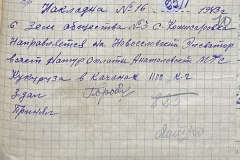 Накладна №16 1943г
6 Зем общества №3 с. Комисаровка
Направляется на Новоселовский Элеватор
в счет Натур Оплаты Анатольевской МТС
Кукуруза в Качанах 1100 кг
Здал
Принял